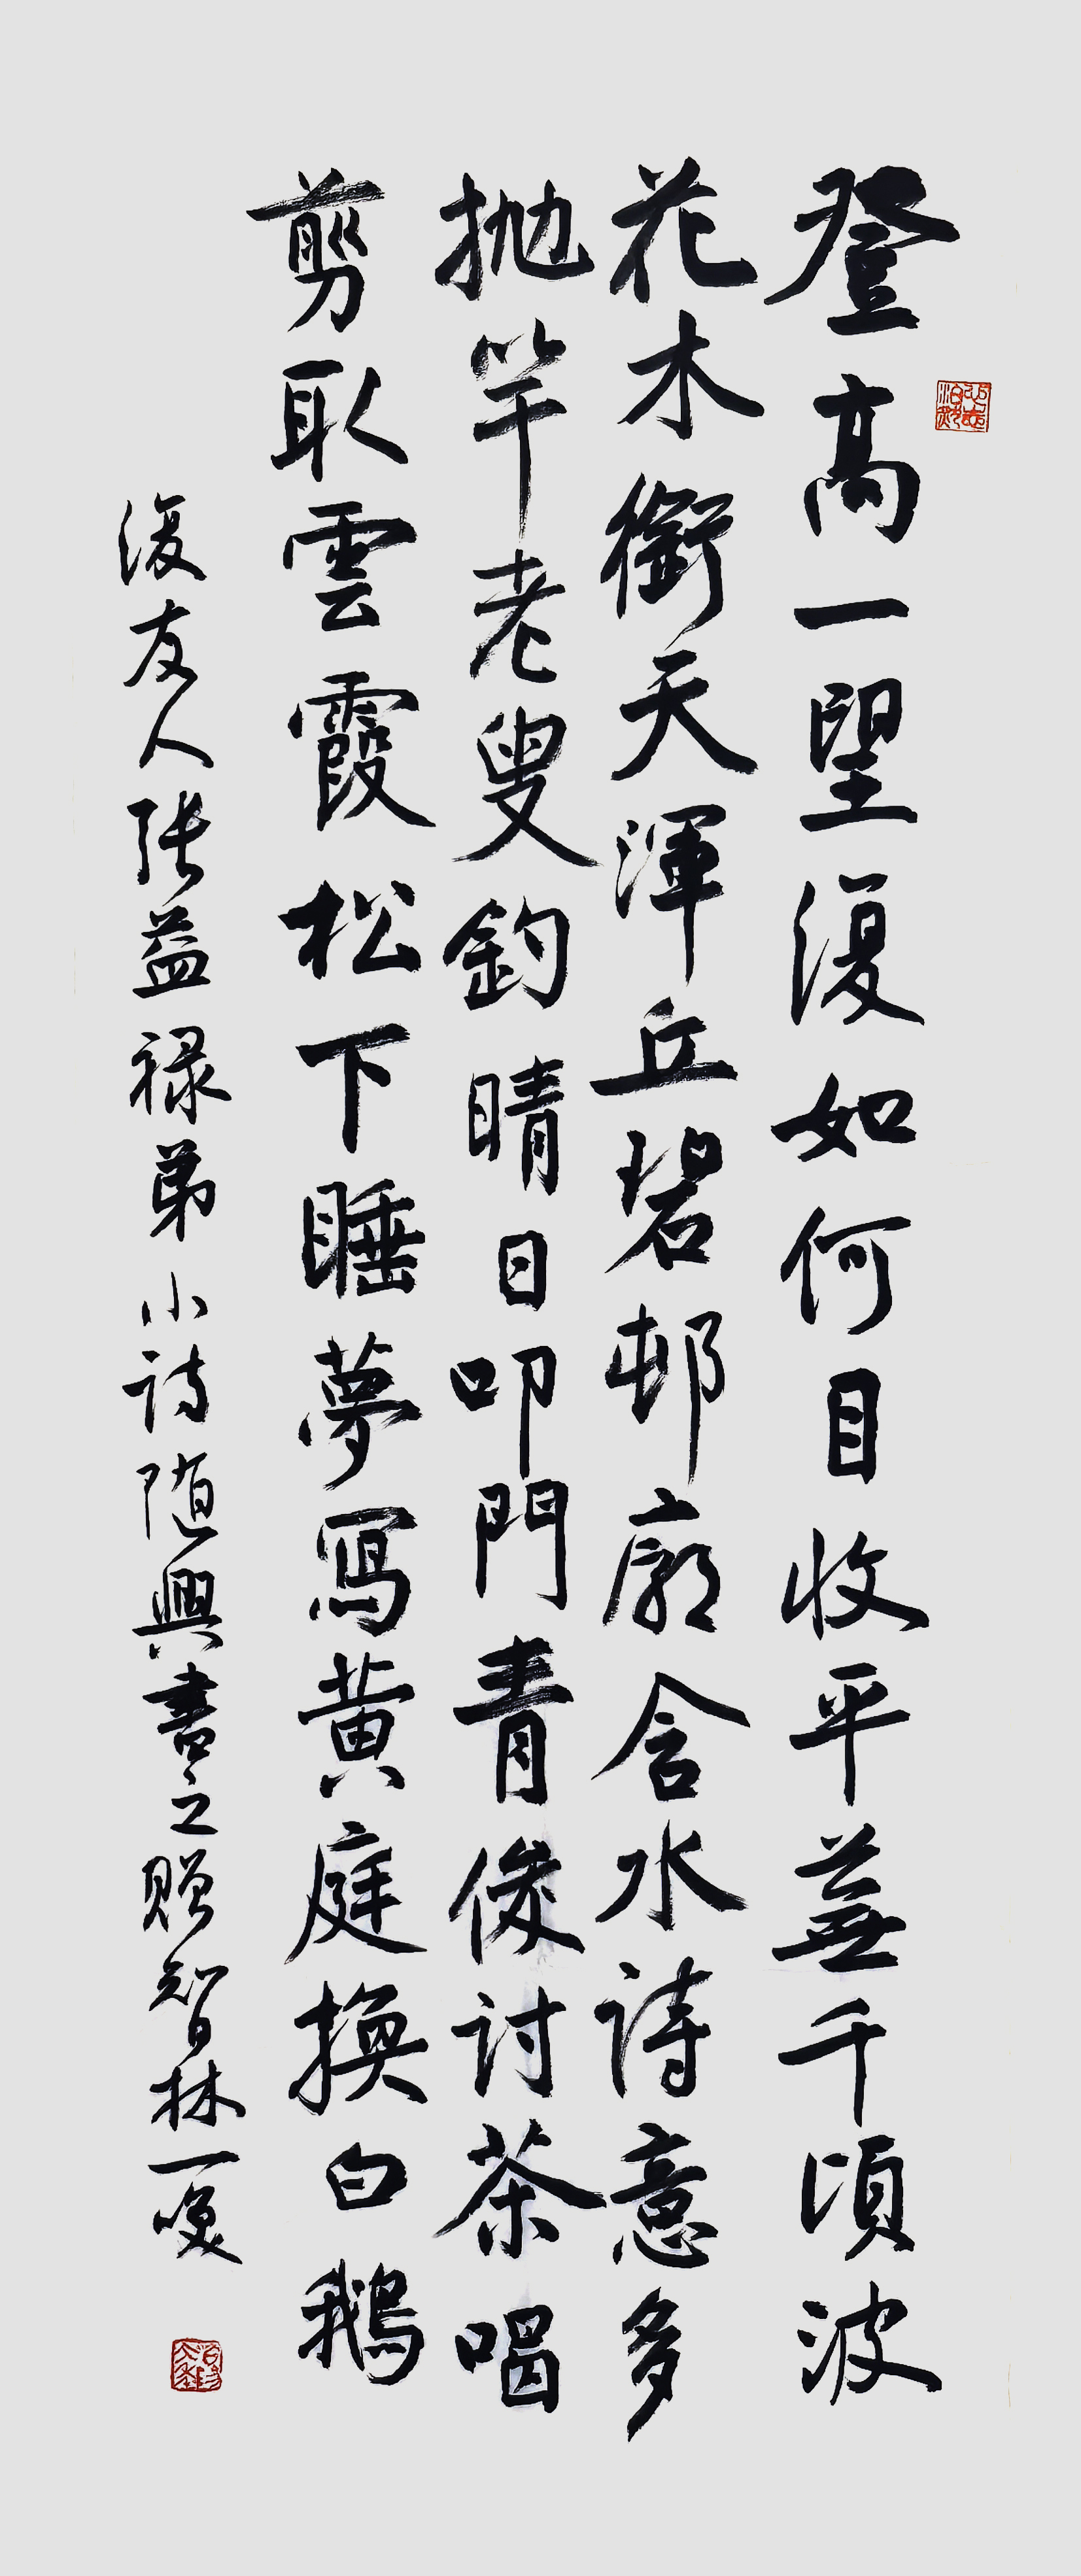 登高一望復如何目收平蕪千頃波
花木銜天渾丘碧邨廓含水詩意多
拋竿老叟釣晴日叩門青俊討茶喝
剪取雲霞松下睡夢寫黄庭換白鵝
復友人張益禄弟小詩随興書之贈智林一笑